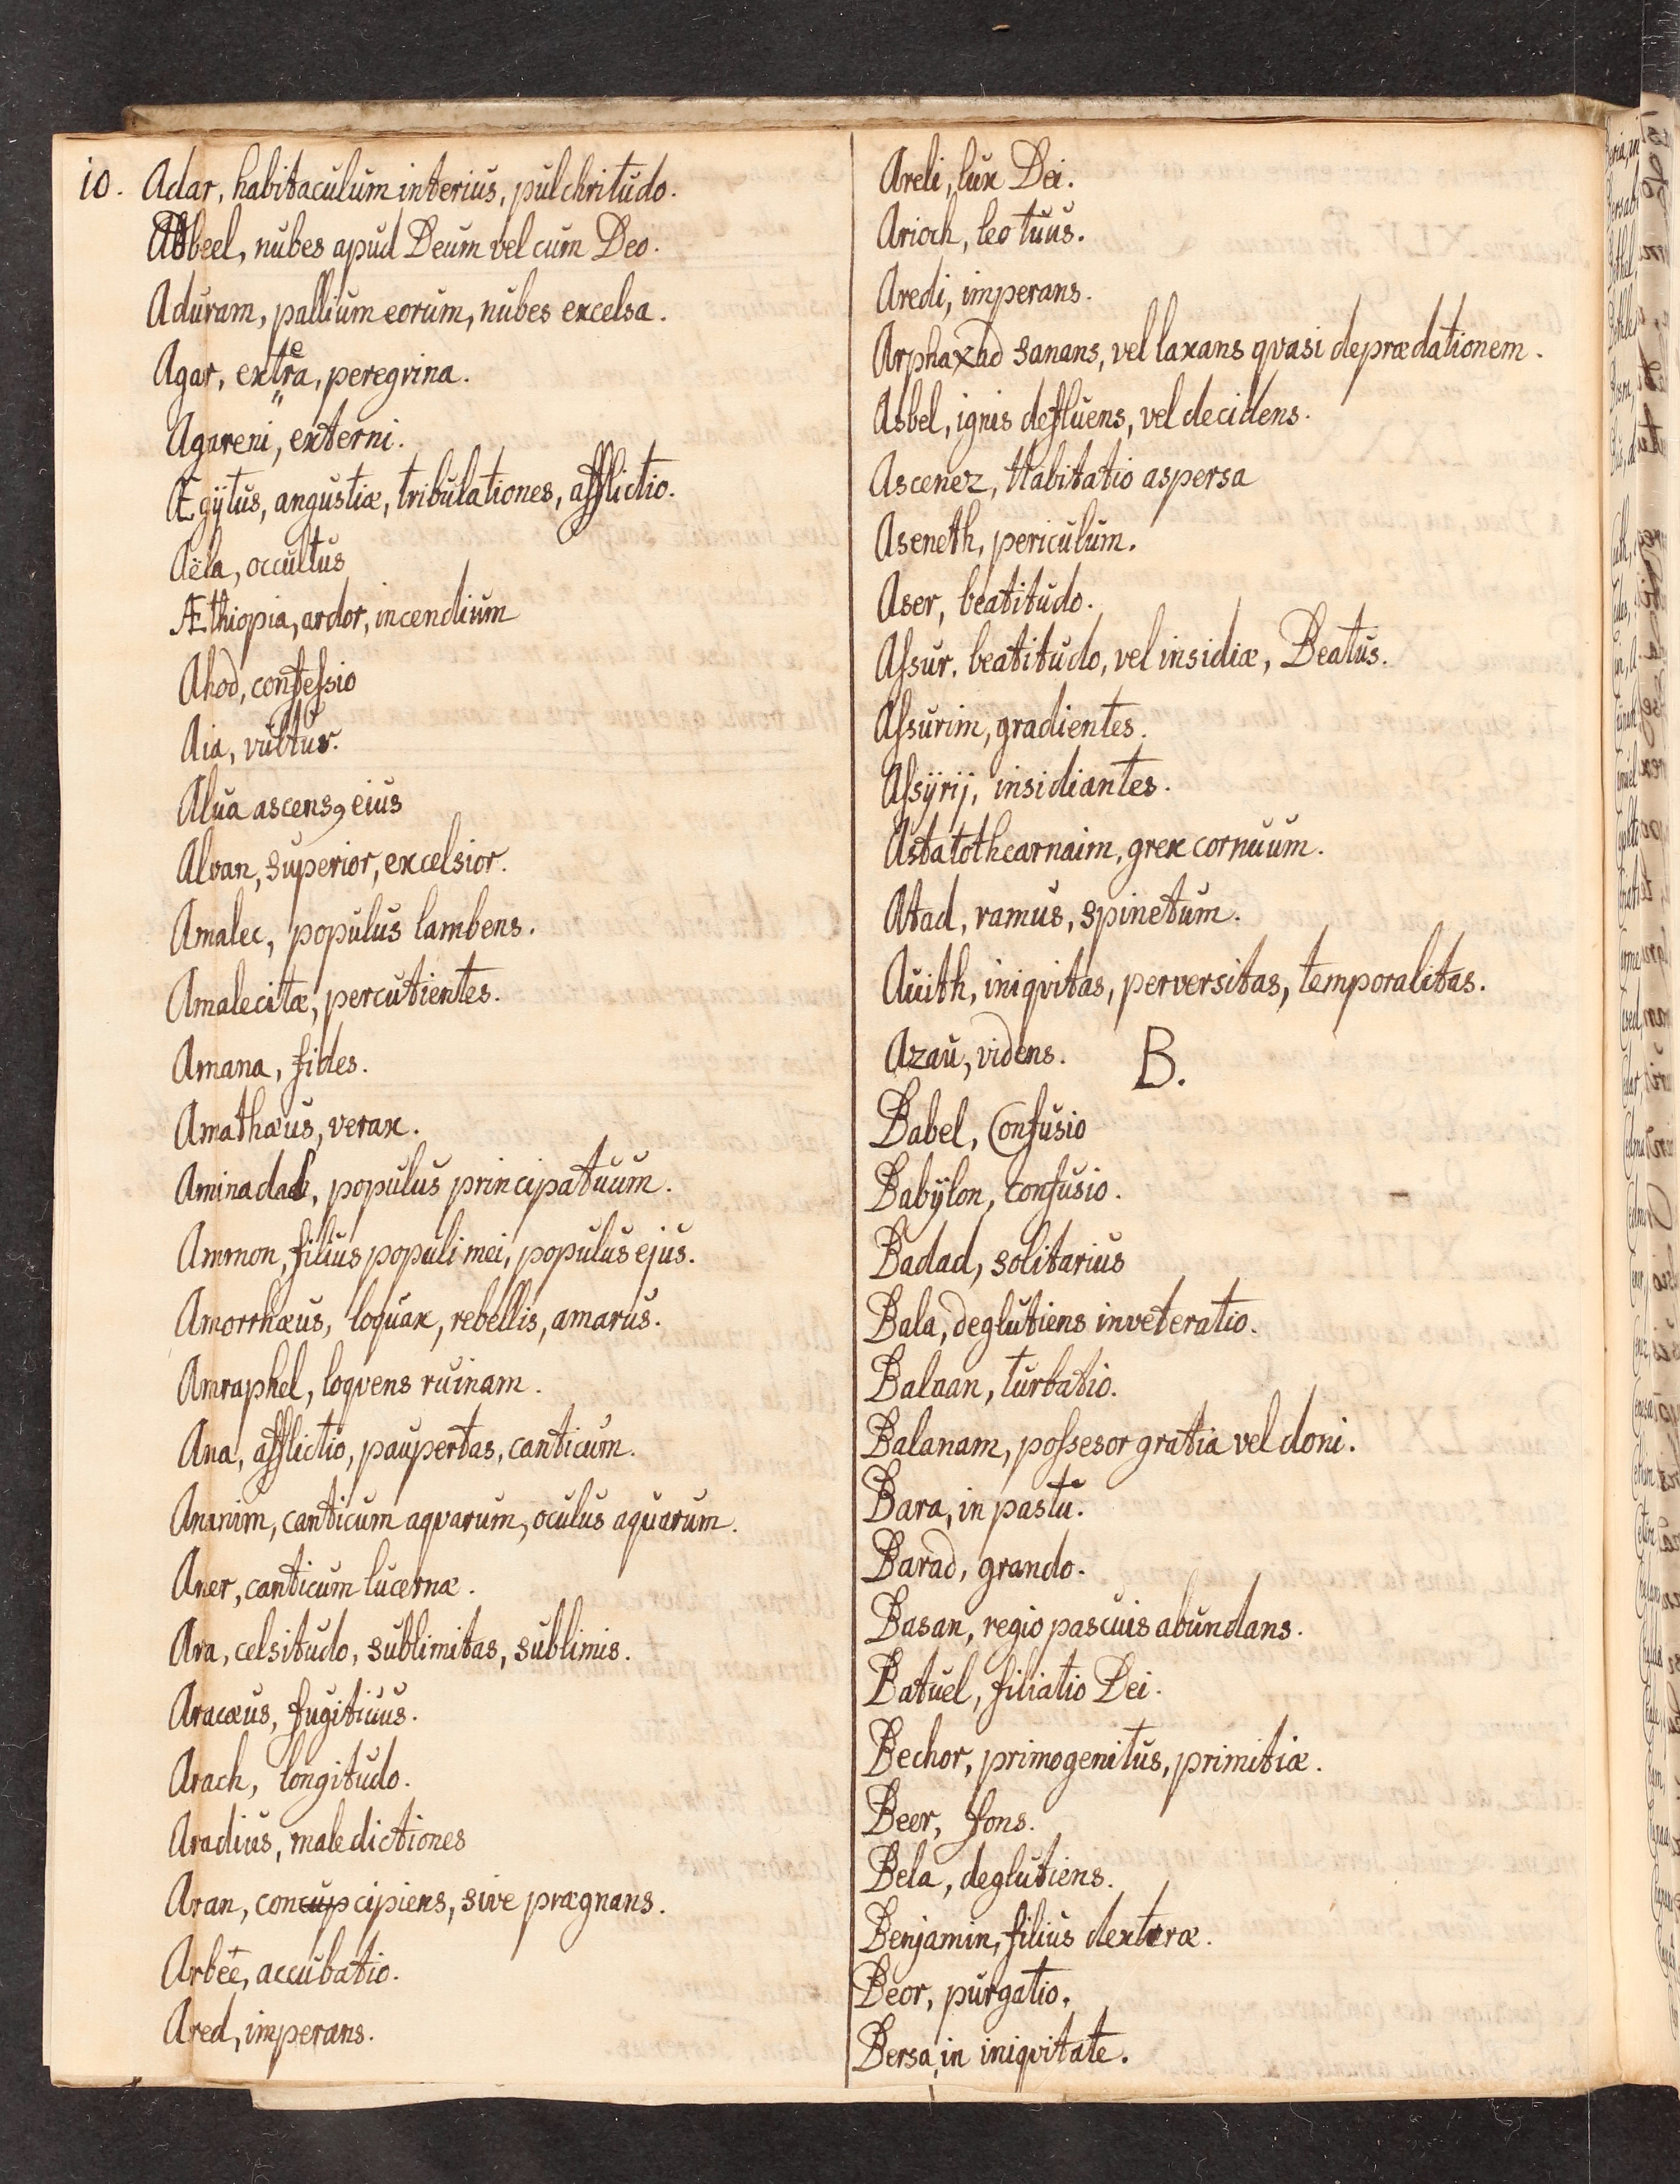 10. Adar, habitaculum interius, pulchritudo.
Adbeel, nubes apud Deum vel cum Deo.
Aduram, pallium eorum, nubes excelsa.
Agar, extera, peregrina.
Agareni, externi.
Ægÿtus, angustiæ, tribulationes, afflictio.
Aëla, occultus
Æthiopia, ardor, incendium
Ahod, confessio
Aia, vultur.
Alua ascensꝯ eius
Alvan, superior, excelsior.
Amalec, populus lambens.
Amalecitæ, percutientes.
Amana, fides.
Amathæus, verax.
Aminadab, populus principatuum.
Ammon, filius populi mei, populus ejus.
Amorrhæus, loquax, rebellis, amarus.
Amraphel, loqvens ruinam.
Ana, afflictio, paupertas, canticum.
Ananim, canticum aqvarum, oculus aquarum.
Aner, canticum lucernæ.
Ara, celsitudo, sublimitas, sublimis.
Aracæus, fugitiuus.
Arach, longitudo.
Aradius, maledictiones
Aran, concupcipiens, sive prægnans.
Arbëe, accubatio.
Ared, imperans.
Areli, lux Dei.
Arioch, leo tuus.
Aredi, imperans.
Arphaxad sanans, vel laxans qvasi deprædationem.
Asbel, ignis defluens, vel decidens.
Ascenez, Habitatio aspersa
Aseneth, periculum.
Aser, beatitudo.
Assur, beatitudo, vel insidiæ, Beatus.
Assurim, gradientes.
Assÿrij, insidiantes.
Astatothcarnaim, grex cornuum.
Atad, ramus, spinetum.
Auith, iniqvitas, perversitas, temporalitas.
Azau, videns.
B.
Babel, Confusio
Babÿlon, confusio.
Badad, solitarius
Bala, deglutiens inveteratio.
Balaan, turbatio.
Balanam, possesor gratia vel doni.
Bara, in pastu.
Barad, grando.
Basan, regio pascuis abundans.
Batuel, filiatio Dei.
Bechor, primogenitus, primitiæ.
Beer, fons.
Bela, deglutiens.
Benjamin, filius dexteræ.
Beor, purgatio,
Bersa, in iniqvitate.